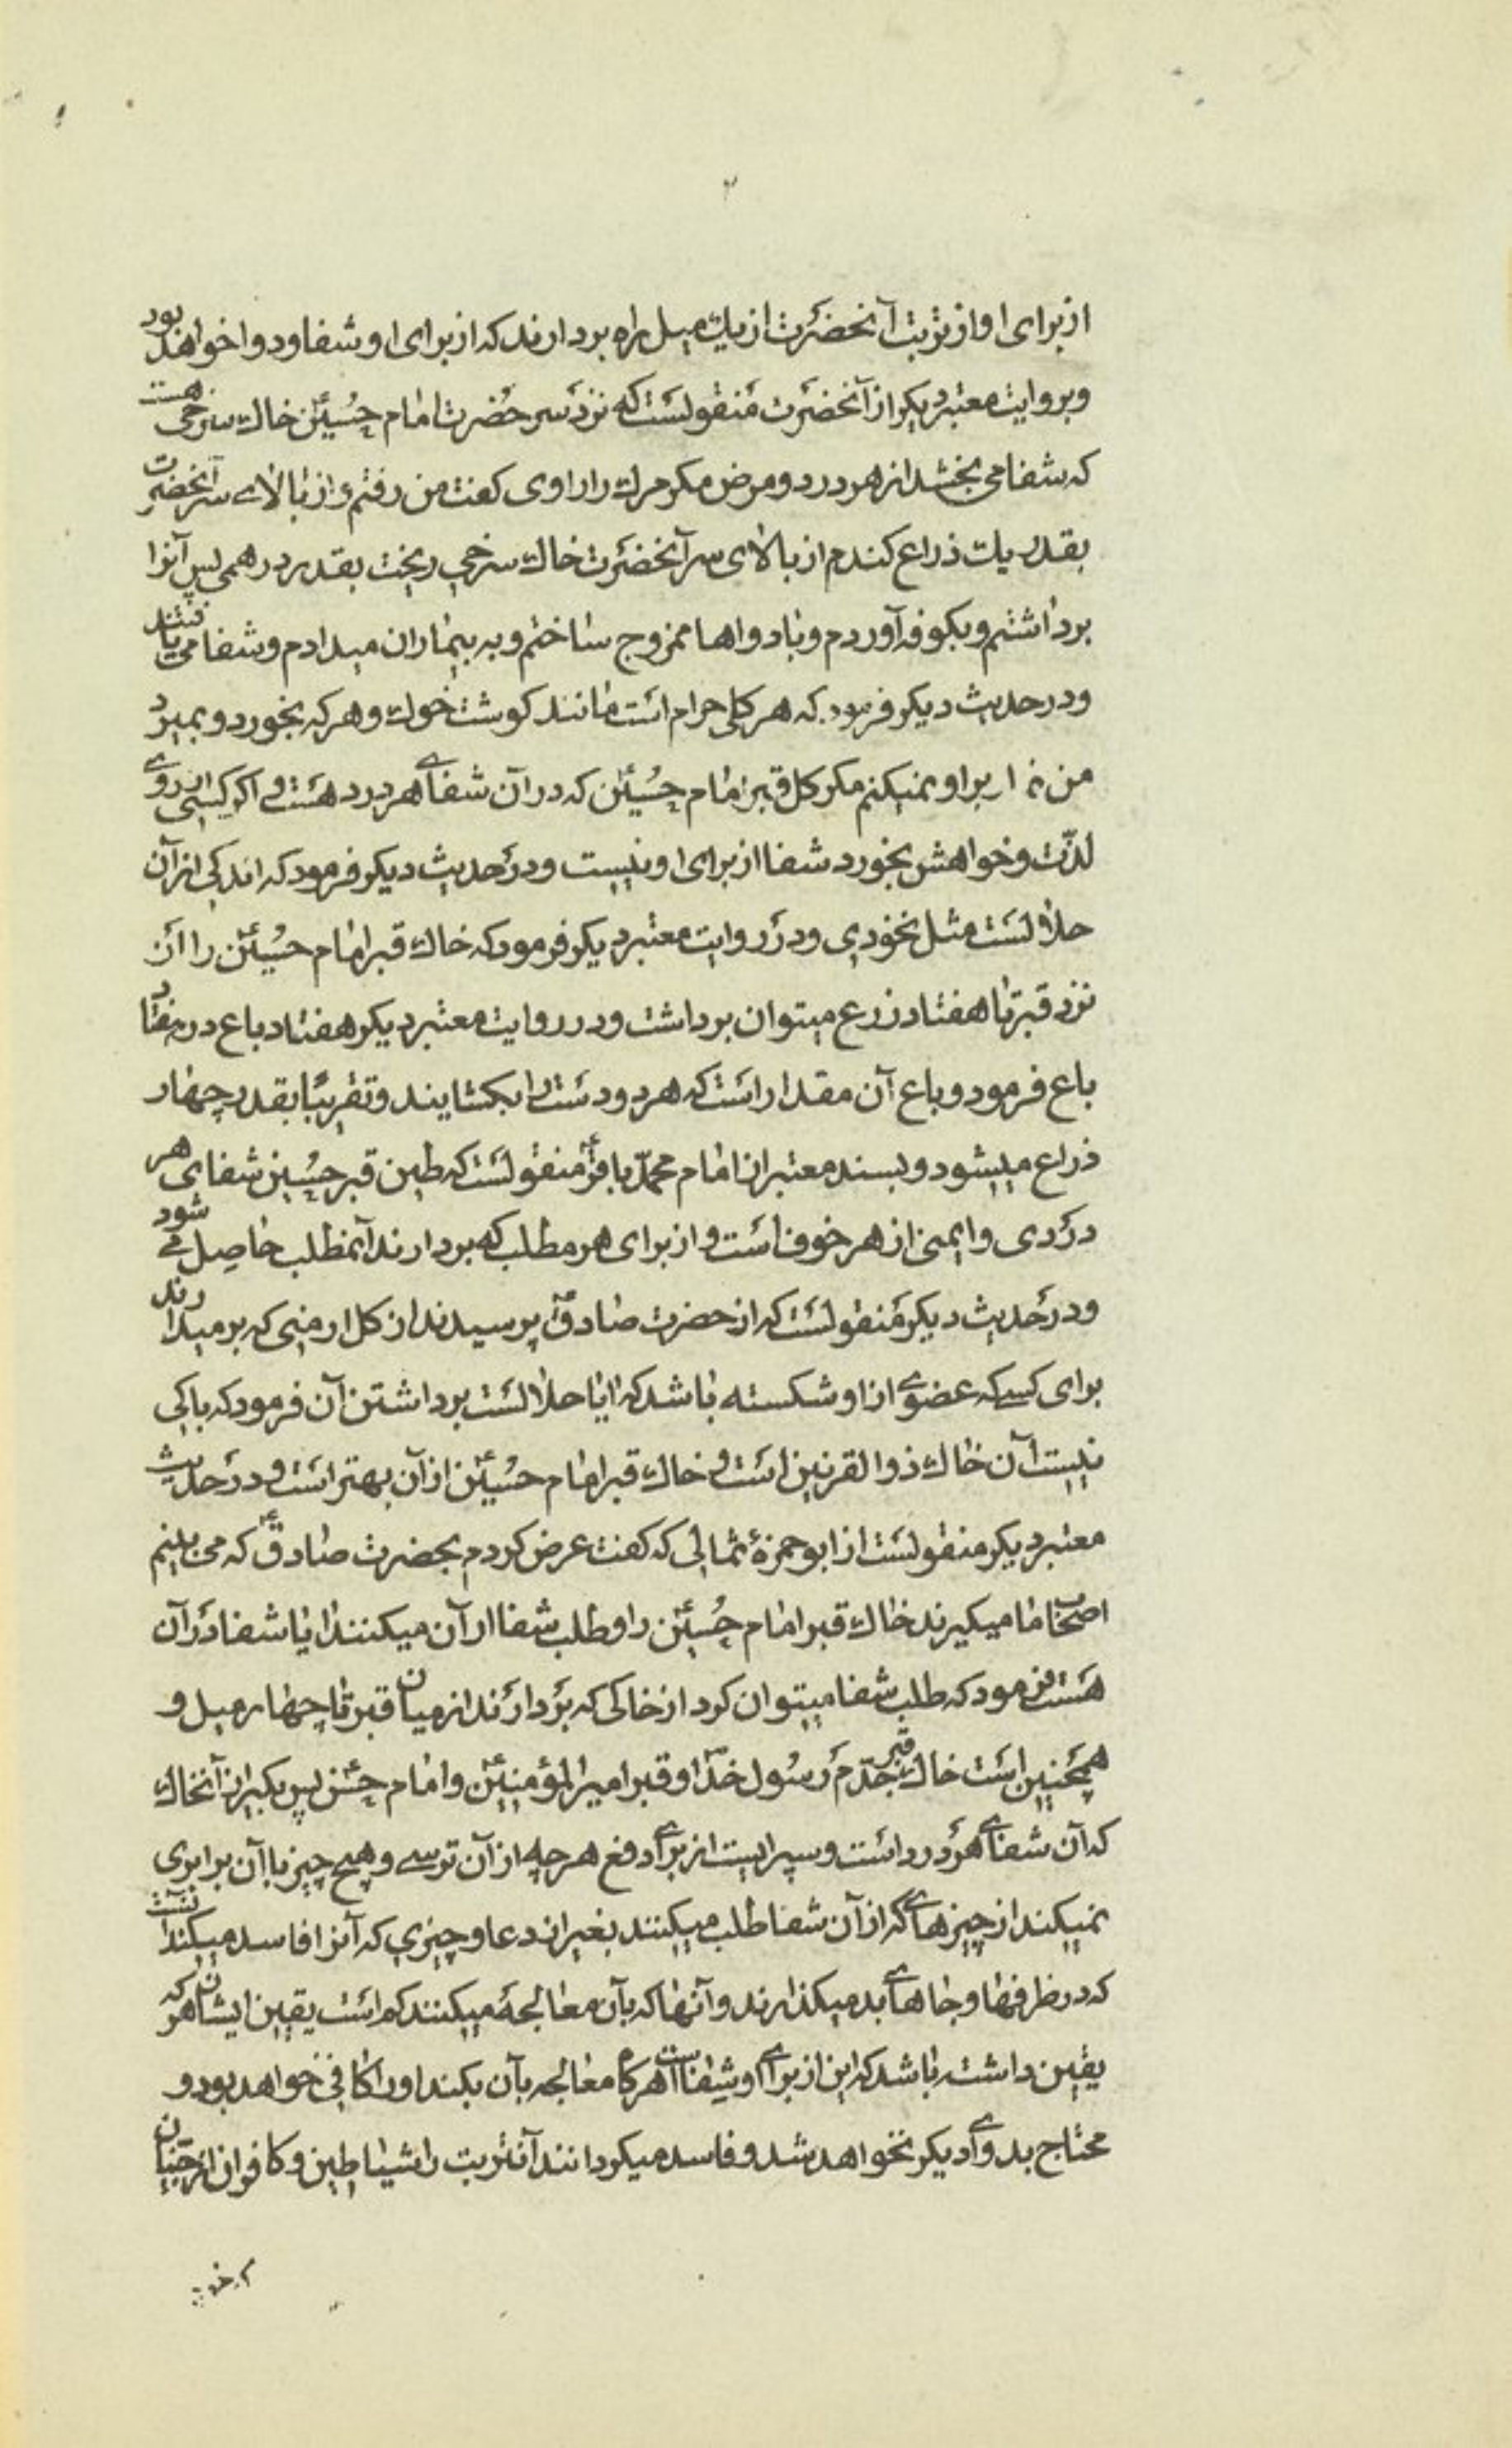 ۲
از برای او از تربت آنحضرت از یك میل راه بردارند که از برای او شفا و دوا خواهد بود
و بروایت معتبر دیکر از آنحضرت منقولست که نزد سر حضرت امام حسینؑ خاك سرخی هست
که شفا می بخشد از هر درد و مرض مکر مرك را راوی کفت من رفتم و از بالای سر آنحضرت
بقدر یك ذراع کندم از بالای سر آنحضرت خاك سرخی ریخت بقدر درهمی پس آنرا
برداشتم و بکوفه آوردم و با دواها ممزوج ساختم و به بیماران میدادم و شفا می یافتند
و در حدیث دیکر فرمود که هر کلی حرام است مانند کوشت خوك و هر که بخورد و بمیرد
من نماز بر او نمیکنم مکر کل قبر امام حسینؑ که در آن شفای هر درد هست و اکر کسی از روی
لذّت و خواهش بخورد شفا از برای او نیست و در حدیث دیکر فرمود که اندکی از آن
حلالست مثل نخودی و در روایت معتبر دیکر فرمود که خاك قبر امام حسینؑ را از
نزد قبر تا هفتاد زرع میتوان برداشت و در روایت معتبر دیکر هفتاد باع در هفتاد
باع فرمود و باع آن مقدار است که هر دو دست را بکشایند و تقریبًا بقدر چهار
ذراع میشود و بسند معتبر از امام محمّد باقرؑ منقولست که طین قبر حسین شفای هر
دردی و ایمنی از هر خوف است و از برای هر مطلب که بردارند آنمطلب حاصل می شود
و در حدیث دیکر منقولست که از حضرت صادقؑ پرسیدند از کل ارمنی که بر میدارند
برای کسیکه عضوی از او شکسته باشد که ایا حلالست برداشتن آن فرمود که باکی
نیست آن خاك ذو القرنین است و خاك قبر امام حسینؑ از آن بهتر است و در حدیث
معتبر دیکر منقولست از ابو حمزۀ ثمالی که کفت عرض کردم بحضرت صادقؑ که می بینم
اصحاب ما میکیرند خاك قبر امام حسینؑ را و طلب شفا از آن میکنند ایا شفا در آن
هست فرمود که طلب شفا میتوان کرد از خاکی که بردارند از میان قبر تا چهار میل و
همچنین است خاك قبر جدّم رسول خدا و قبر امیر المؤمنینؑ و امام حسنؑ پس بکیر از آنخاك
که آن شفای هر درد است و سپر ایست از برای دفع هر چه از آن ترسی و هیچ چیز با آن برابری
نمیکند از چیزهای که از آن شفا طلب میکنند بغیر از دعا و چیزی که آنرا فاسد میکند آنست
که در ظرفها و جاهای بد میکذارند و آنها که بآن معالجه میکنند کم است یقین ایشان هر که
یقین داشته باشد که این از برای او شفا است هرکاه معالجه بآن بکند او را کافی خواهد بود و
محتاج بدوای دیکر نخواهد شد و فاسد میکردانند آنتربت را شیاطین و کافران از جنیان